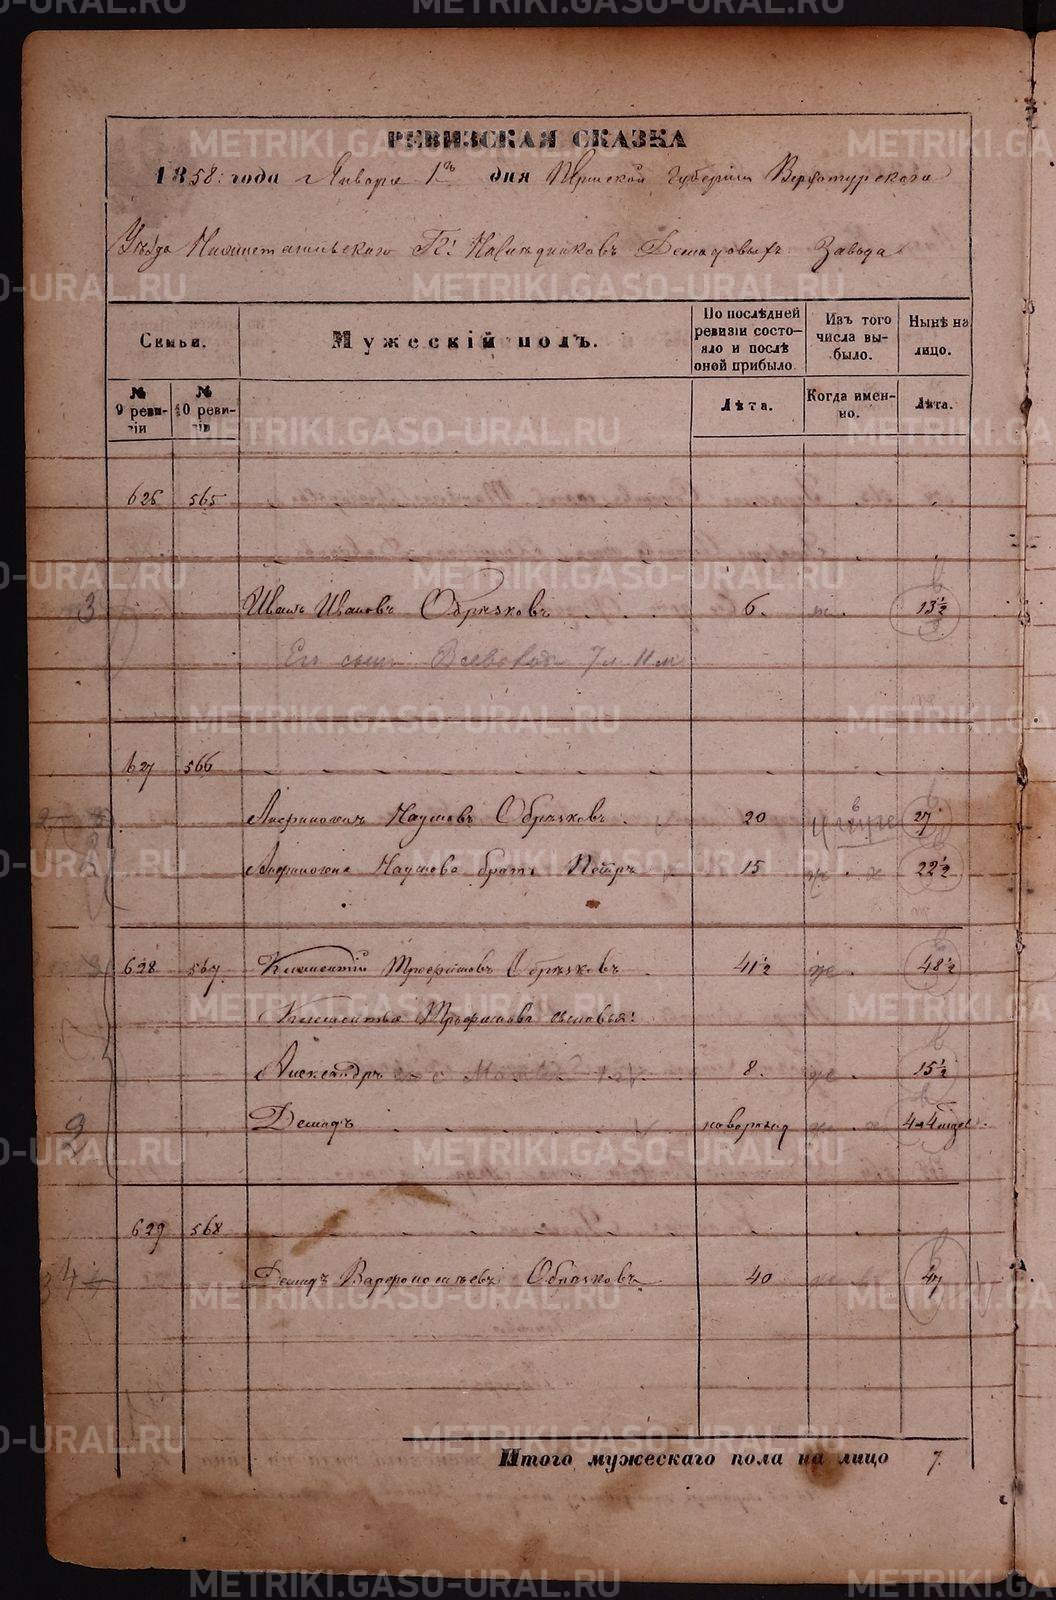 METRIKI.GASO-URAL.RU
РЕВИЗСКАЯ СКАЗКА
1858: года Января 1го дня Пермской Губерніи Верхотурскаго
Уѣзда Нижнетагильскаго Гг: Наслѣдниковъ Демидовыхъ Завода
Семьи.
Мужескій полъ.
По послѣдней ревизіи состояло и послѣ оной прибыло.
Изъ того числа выбыло.
Нынѣ на лицо.
№ 9 ревизіи
№ 10 ревизіи
Лѣта.
Когда именно.
Лѣта.
626 565
3 Иванъ Ивановъ Обрѣзковъ 6. 13½
Его сынъ Всеволодъ 7 л 11 м
627 566
Наумовъ Обрѣзковъ 20 27
Наумова братъ Петръ 15 22½
628 567 Климентій Трофимовъ Обрѣзковъ 41½ 48½
Климентья Трофимова сыновья:
Александръ 8. 15½
2 Демидъ новорожд
629 568
4 Демидъ Варфоломѣевъ Обрѣзковъ 40 47
Итого мужескаго пола на лицо 7.